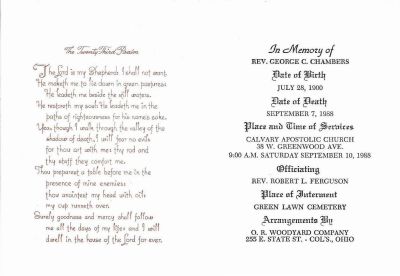 The Twenty Third Psalm
The Lord is my Shepherd I shall not want.
He maketh me to lie down in green pastures:
He leadeth me beside the still waters.
He restoreth my soul: He leadeth me in the
paths of righteousness for his name's sake.
Yea, though I walk through the valley of the
shadow of death, I will fear no evil:
for thou art with me: thy rod and
thy staff they comfort me.
Thou preparest a table before me in the
presence of mine enemies:
thou anointest my head with oil:
my cup runneth over.
Surely goodness and mercy shall follow
me all the days of my life: and I will
dwell in the house of the Lord for ever.
In Memory of
REV. GEORGE C. CHAMBERS
Date of Birth
JULY 28, 1900
Date of Death
SEPTEMBER 7, 1988
Place and Time of Services
CALVARY APOSTOLIC CHURCH
38 W. GREENWOOD AVE.
9:00 A.M. SATURDAY SEPTEMBER 10, 1988
Officiating
REV. ROBERT L. FERGUSON
Place of Interment
GREEN LAWN CEMETERY
Arrangements By
O. R. WOODYARD COMPANY
255 E. STATE ST. - COL'S., OHIO